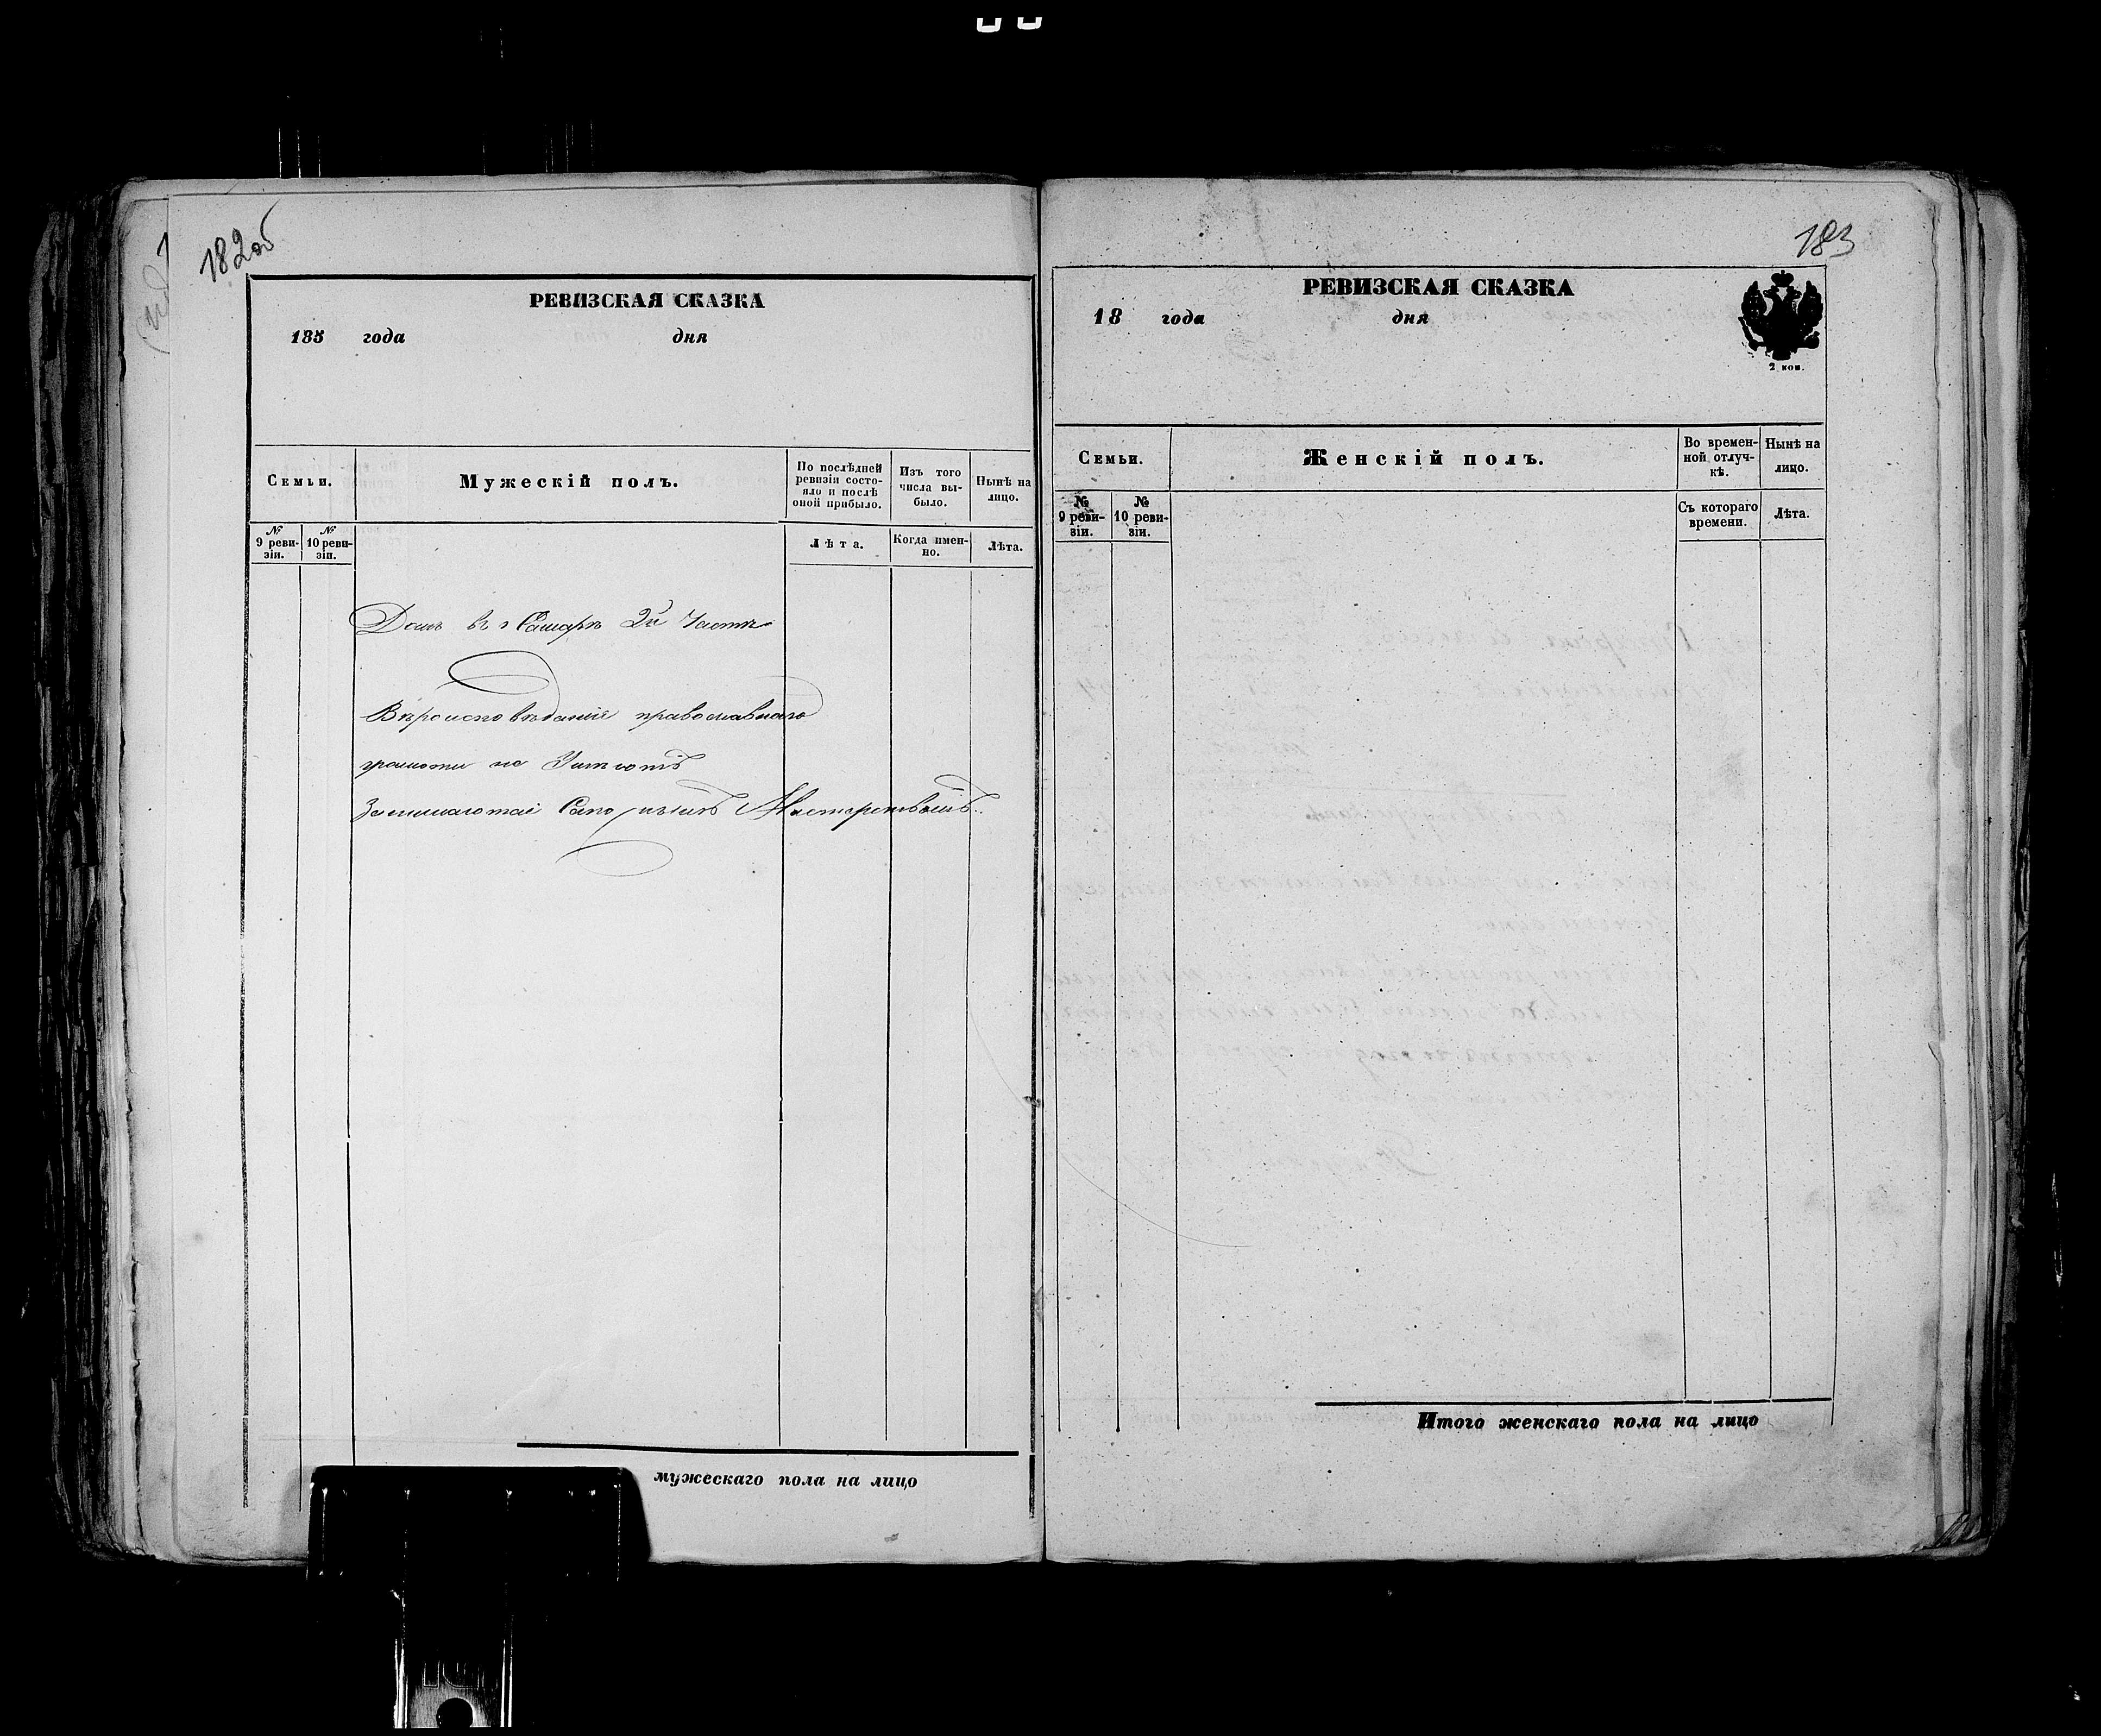 182об
РЕВИЗСКАЯ СКАЗКА
185 года дня
Семьи.
Мужескій полъ.
По послѣдней ревизіи состояло и послѣ оной прибыло.
Изъ того числа выбыло.
Нынѣ на лицо.
№ 9 ревизіи.
№ 10 ревизіи.
Лѣта.
Когда именно.
Лѣта.
Домъ въ г Самарѣ 2й Части
Вѣроисповѣданія православнаго
грамоти не Умѣютъ
Занимаются Сапожнымъ Мастерствомъ.
мужескаго пола на лицо
183
РЕВИЗСКАЯ СКАЗКА
18 года дня
2 коп.
Семьи.
Женскій полъ.
Во временной отлучкѣ.
Нынѣ на лицо.
№ 9 ревизіи.
№ 10 ревизіи.
Съ котораго времени.
Лѣта.
Итого женскаго пола на лицо